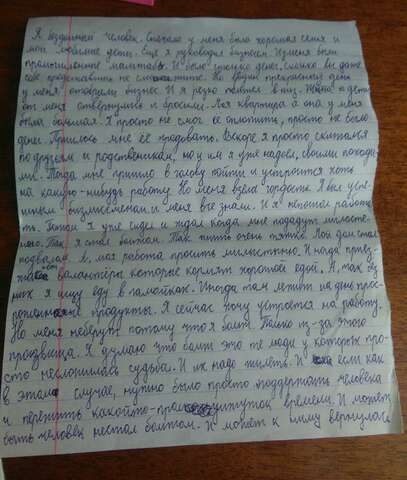 Я бездомный человек. Сначало у меня была хорошая семья и
мои любимые дети. Ещё я руководил бизнесом. Измени были
промышленные И было столько денег сколько вы даже
себе представить не сможите. Но вводин прекрасный день
у меня отобрали бизнес. И я резко полетел в низ. Жена и дети
от меня отвернулись и бросили. Моя квартира а она у меня
была большая. Я просто не смог её оплотить, просто не было
денег. Пришлось мне её продовать. Вскоре я просто скитался
по друзьям и родственикам, но и им я уже надоел, своими похода-
ми. Тогда мне пришло в голову пойти и устроится хоть
на какую-нибудь работу. Но меня взела гордость. Я был успе-
шным бизнесменом и меня все знали. И я нестал работа-
ть. Потом я уже сидел и ждал когда мне подадут милосте-
ню. Так я стал бомтом. Так жить очень тяжко. Мой дом стал
подвалом а, моя работа просить милыстыню. Иногда приез-
жают валантёры которые кормят хорошой едой. А, так без
них я ищу еду в памойках. Иногда там лежит на дне прос-
роченые продукты. Я сейчас хочу устроется на работу.
Но меня неверут потому что я бомт. Только из-за этого
прозвища. Я думаю что бомт это те люди у которых про-
сто несложилась судьба. И их надо жилеть. И если как
в этом случае, нужно было просто поддержать человека
и пережить какойто промижуток времени. И может
быть человек нестал бомтом. И может к нему вернулась